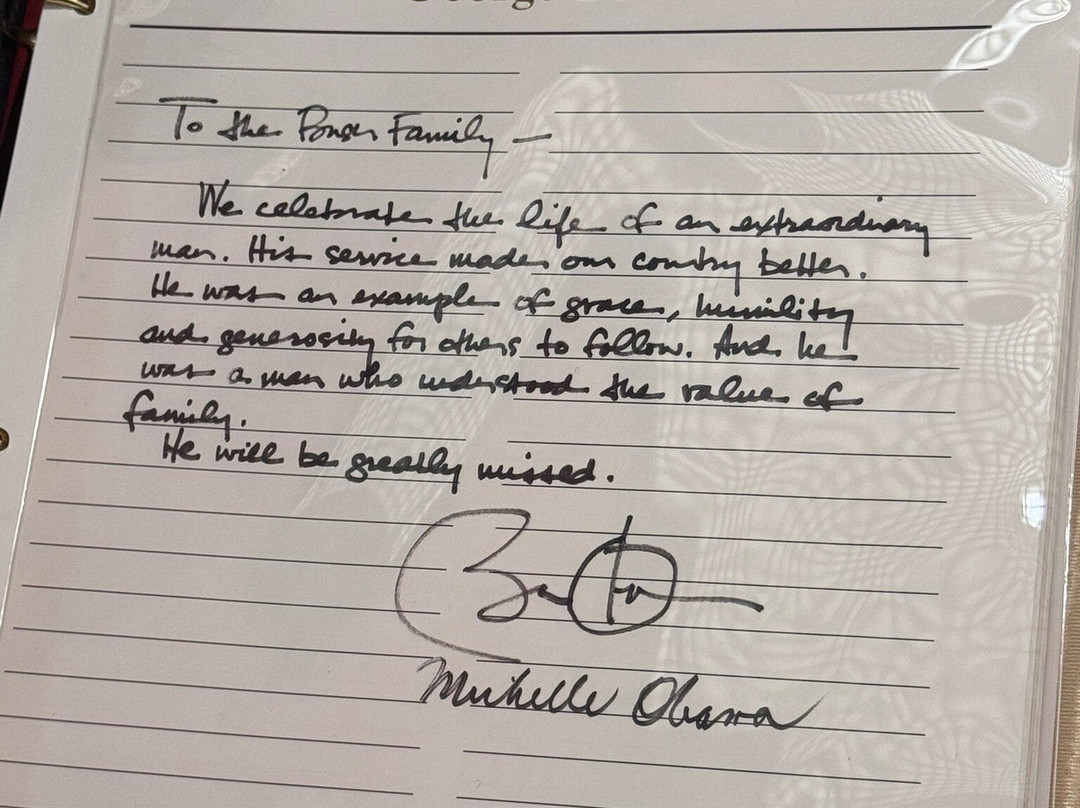 To the Powell Family —
We celebrate the life of an extraordinary
man. His service made our country better.
He was an example of grace, humility
and generosity for others to follow. And he
was a man who understood the value of
family.
He will be greatly missed.
Michelle Obama